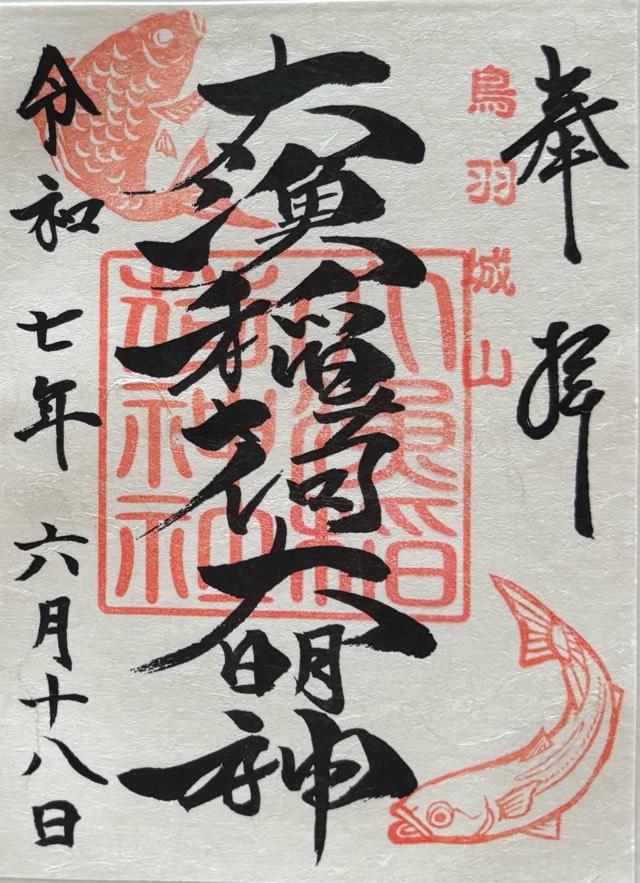 奉拝
鳥羽城山
大漁稲荷大明神
大漁稲
荷神社
令和七年六月十八日